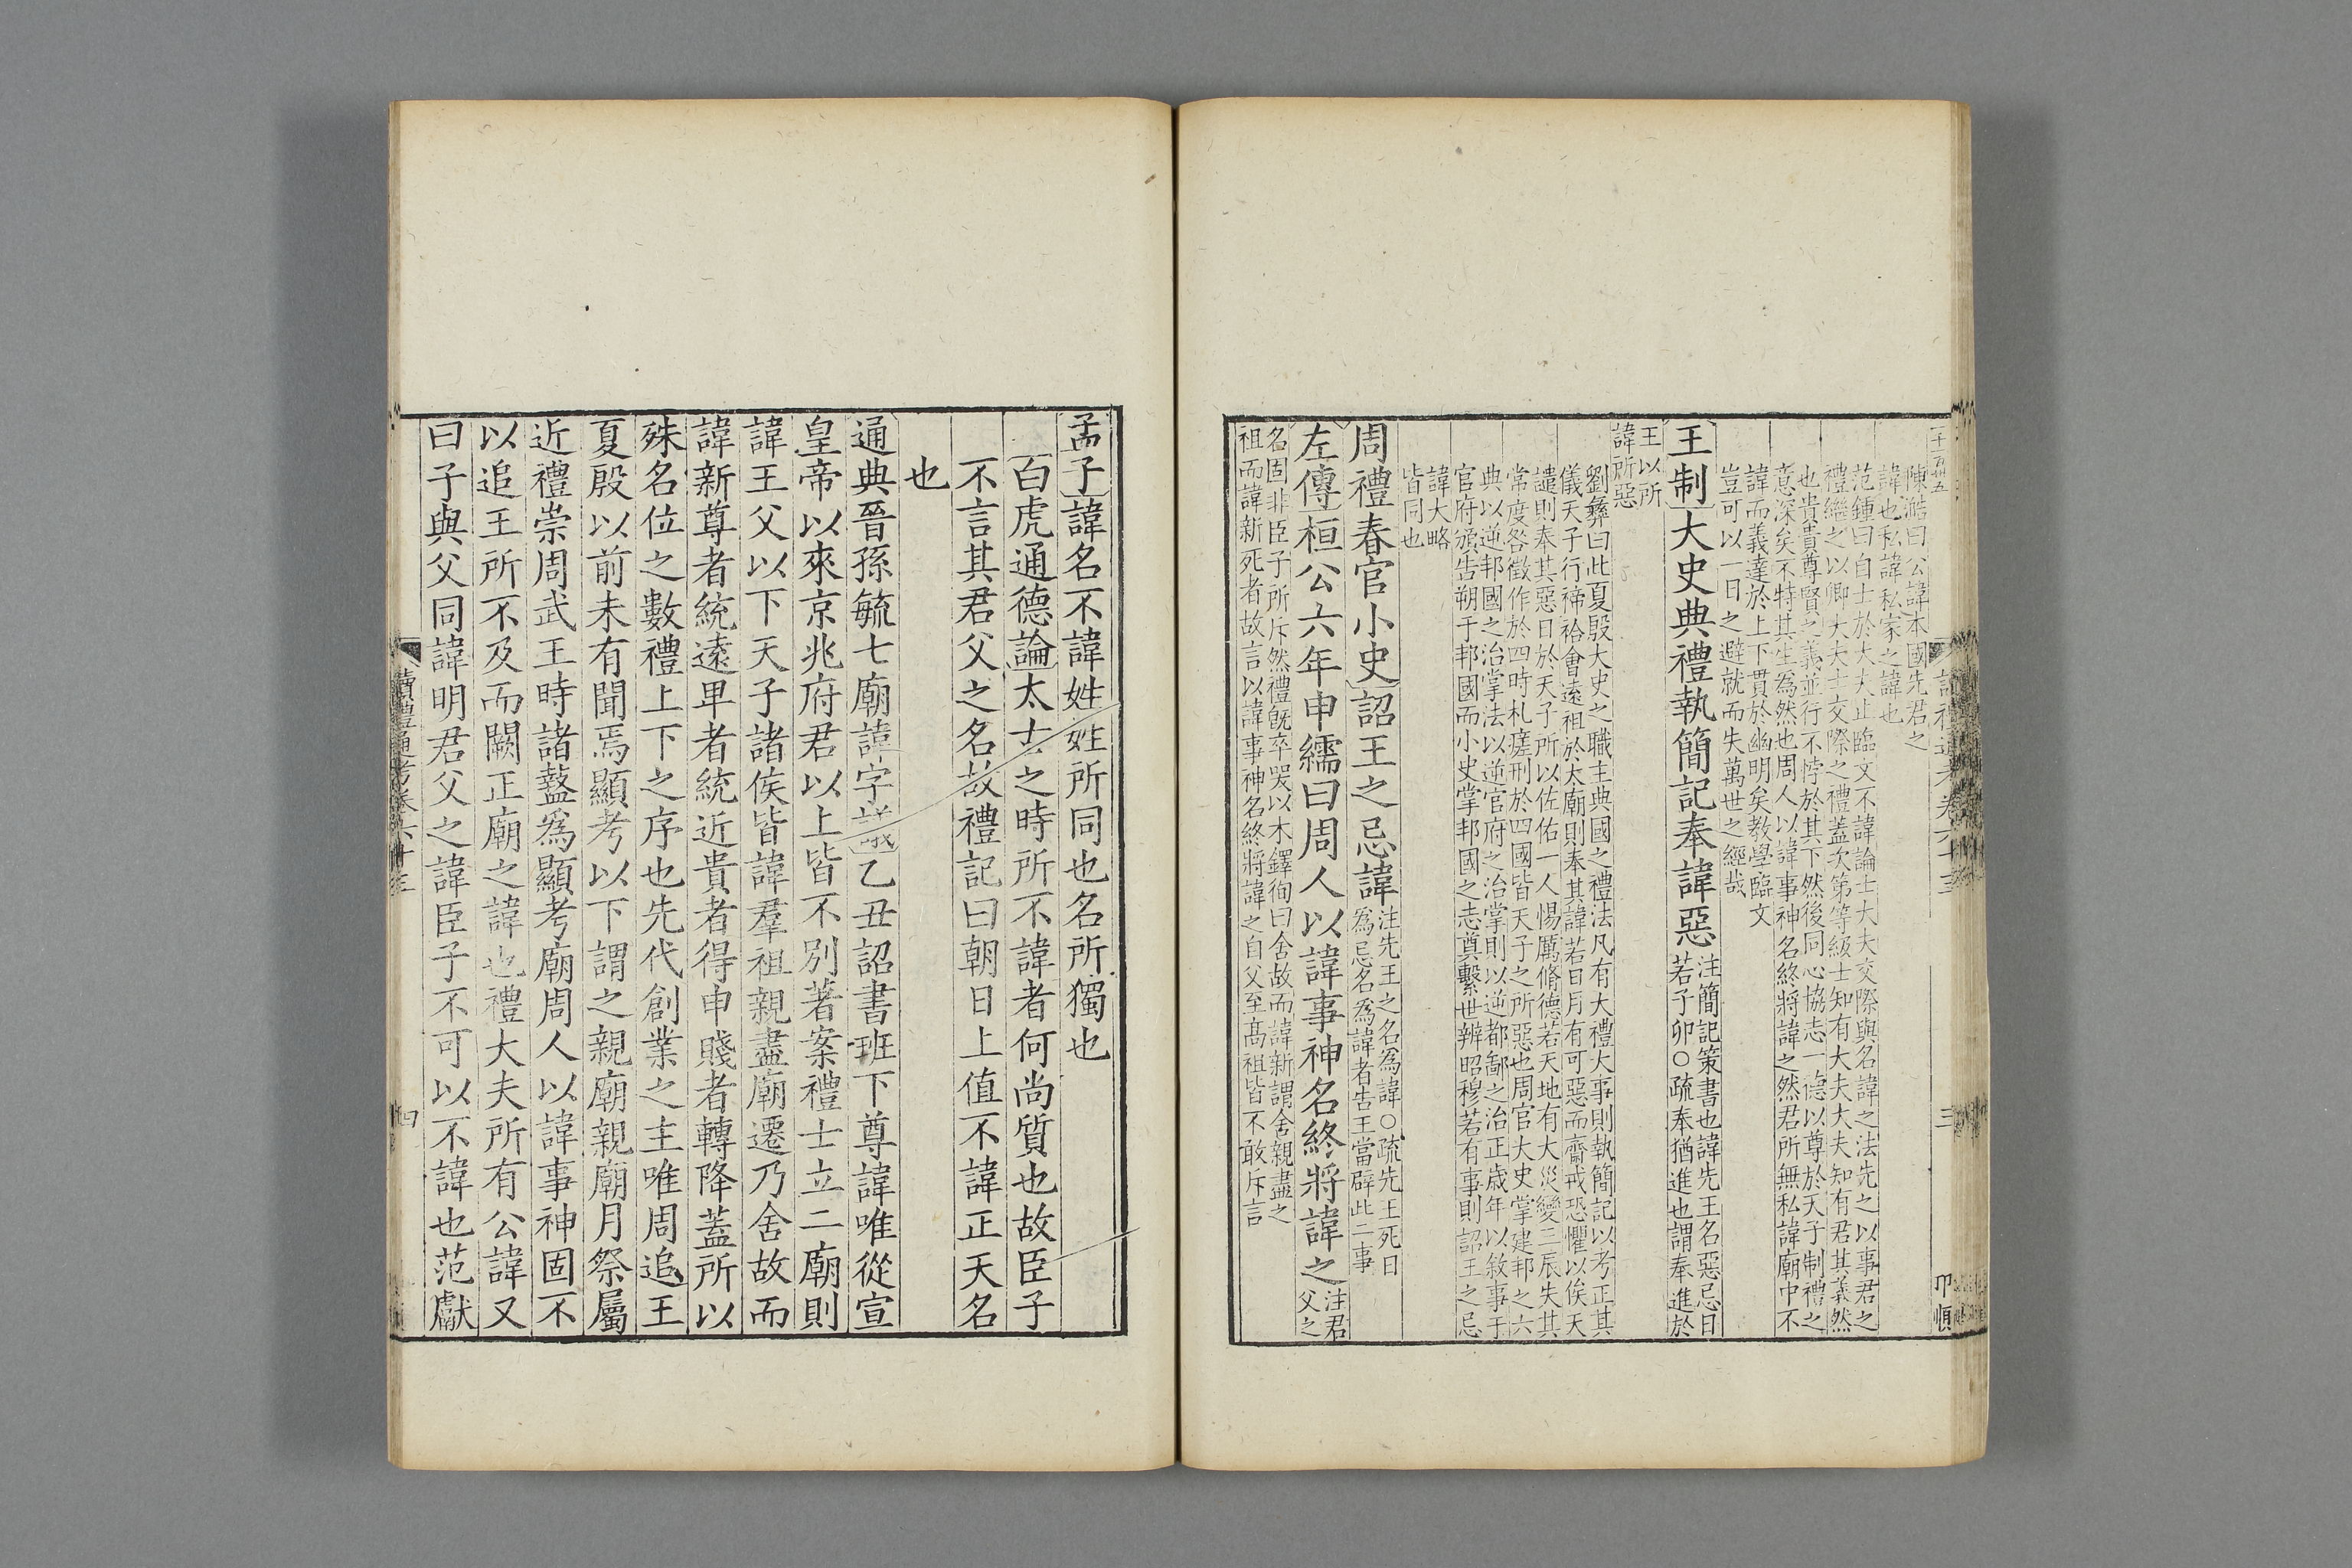 陳澔曰公諱本國先君之
諱也私諱私家之諱也
范鍾曰自士於大夫止臨文不諱論士大夫交際與名諱之法先之以事君之
禮繼之以卿大夫士交際之禮蓋次第等級士知有大夫大夫知有君其義然
也貴貴尊賢之義並行不悖於其下然後同心協志一德以尊於天子制禮之
意深矣不特其生為然也周人以諱事神名終將諱之然君所無私諱廟中不
諱而義達於上下貫於幽明矣教學臨文
豈可以一日之避就而失萬世之經哉
王制大史典禮執簡記奉諱惡注簡記策書也諱先王名惡忌日
若子卯○疏奉猶進也謂奉進於
王以所
諱所惡
劉彝曰此夏殷大史之職主典國之禮法凡有大禮大事則執簡記以考正其
儀天子行禘祫會遠祖於太廟則奉其諱若日月有可惡而齋戒恐懼以俟天
譴則奉其惡日於天子所以佐佑一人惕厲脩德若天地有大災變三辰失其
常度咎徵作於四時札瘥刑於四國皆天子之所惡也周官大史掌建邦之六
典以逆邦國之治掌法以逆官府之治掌則以逆都鄙之治正歲年以敘事于
官府頒告朔于邦國而小史掌邦國之志奠繫世辨昭穆若有事則詔王之忌
諱大略
皆同也
周禮春官小史詔王之忌諱注先王之名為諱○疏先王死日
為忌名為諱者告王當辟此二事
左傳桓公六年申繻曰周人以諱事神名終將諱之注君
父之
名固非臣子所斥然禮既卒哭以木鐸徇曰舍故而諱新謂舍親盡之
祖而諱新死者故言以諱事神名終將諱之自父至高祖皆不敢斥言
孟子諱名不諱姓姓所同也名所獨也
白虎通德論太古之時所不諱者何尚質也故臣子
不言其君父之名故禮記曰朝日上值不諱正天名
也
通典晉孫毓七廟諱字議乙丑詔書班下尊諱唯從宣
皇帝以來京兆府君以上皆不別著案禮士立二廟則
諱王父以下天子諸侯皆諱羣祖親盡廟遷乃舍故而
諱新尊者統遠卑者統近貴者得申賤者轉降蓋所以
殊名位之數禮上下之序也先代創業之主唯周追王
夏殷以前未有聞焉顯考以下謂之親廟親廟月祭屬
近禮崇周武王時諸盩為顯考廟周人以諱事神固不
以追王所不及而闕正廟之諱也禮大夫所有公諱又
曰子與父同諱明君父之諱臣子不可以不諱也范獻
讀禮通考卷六十三
四